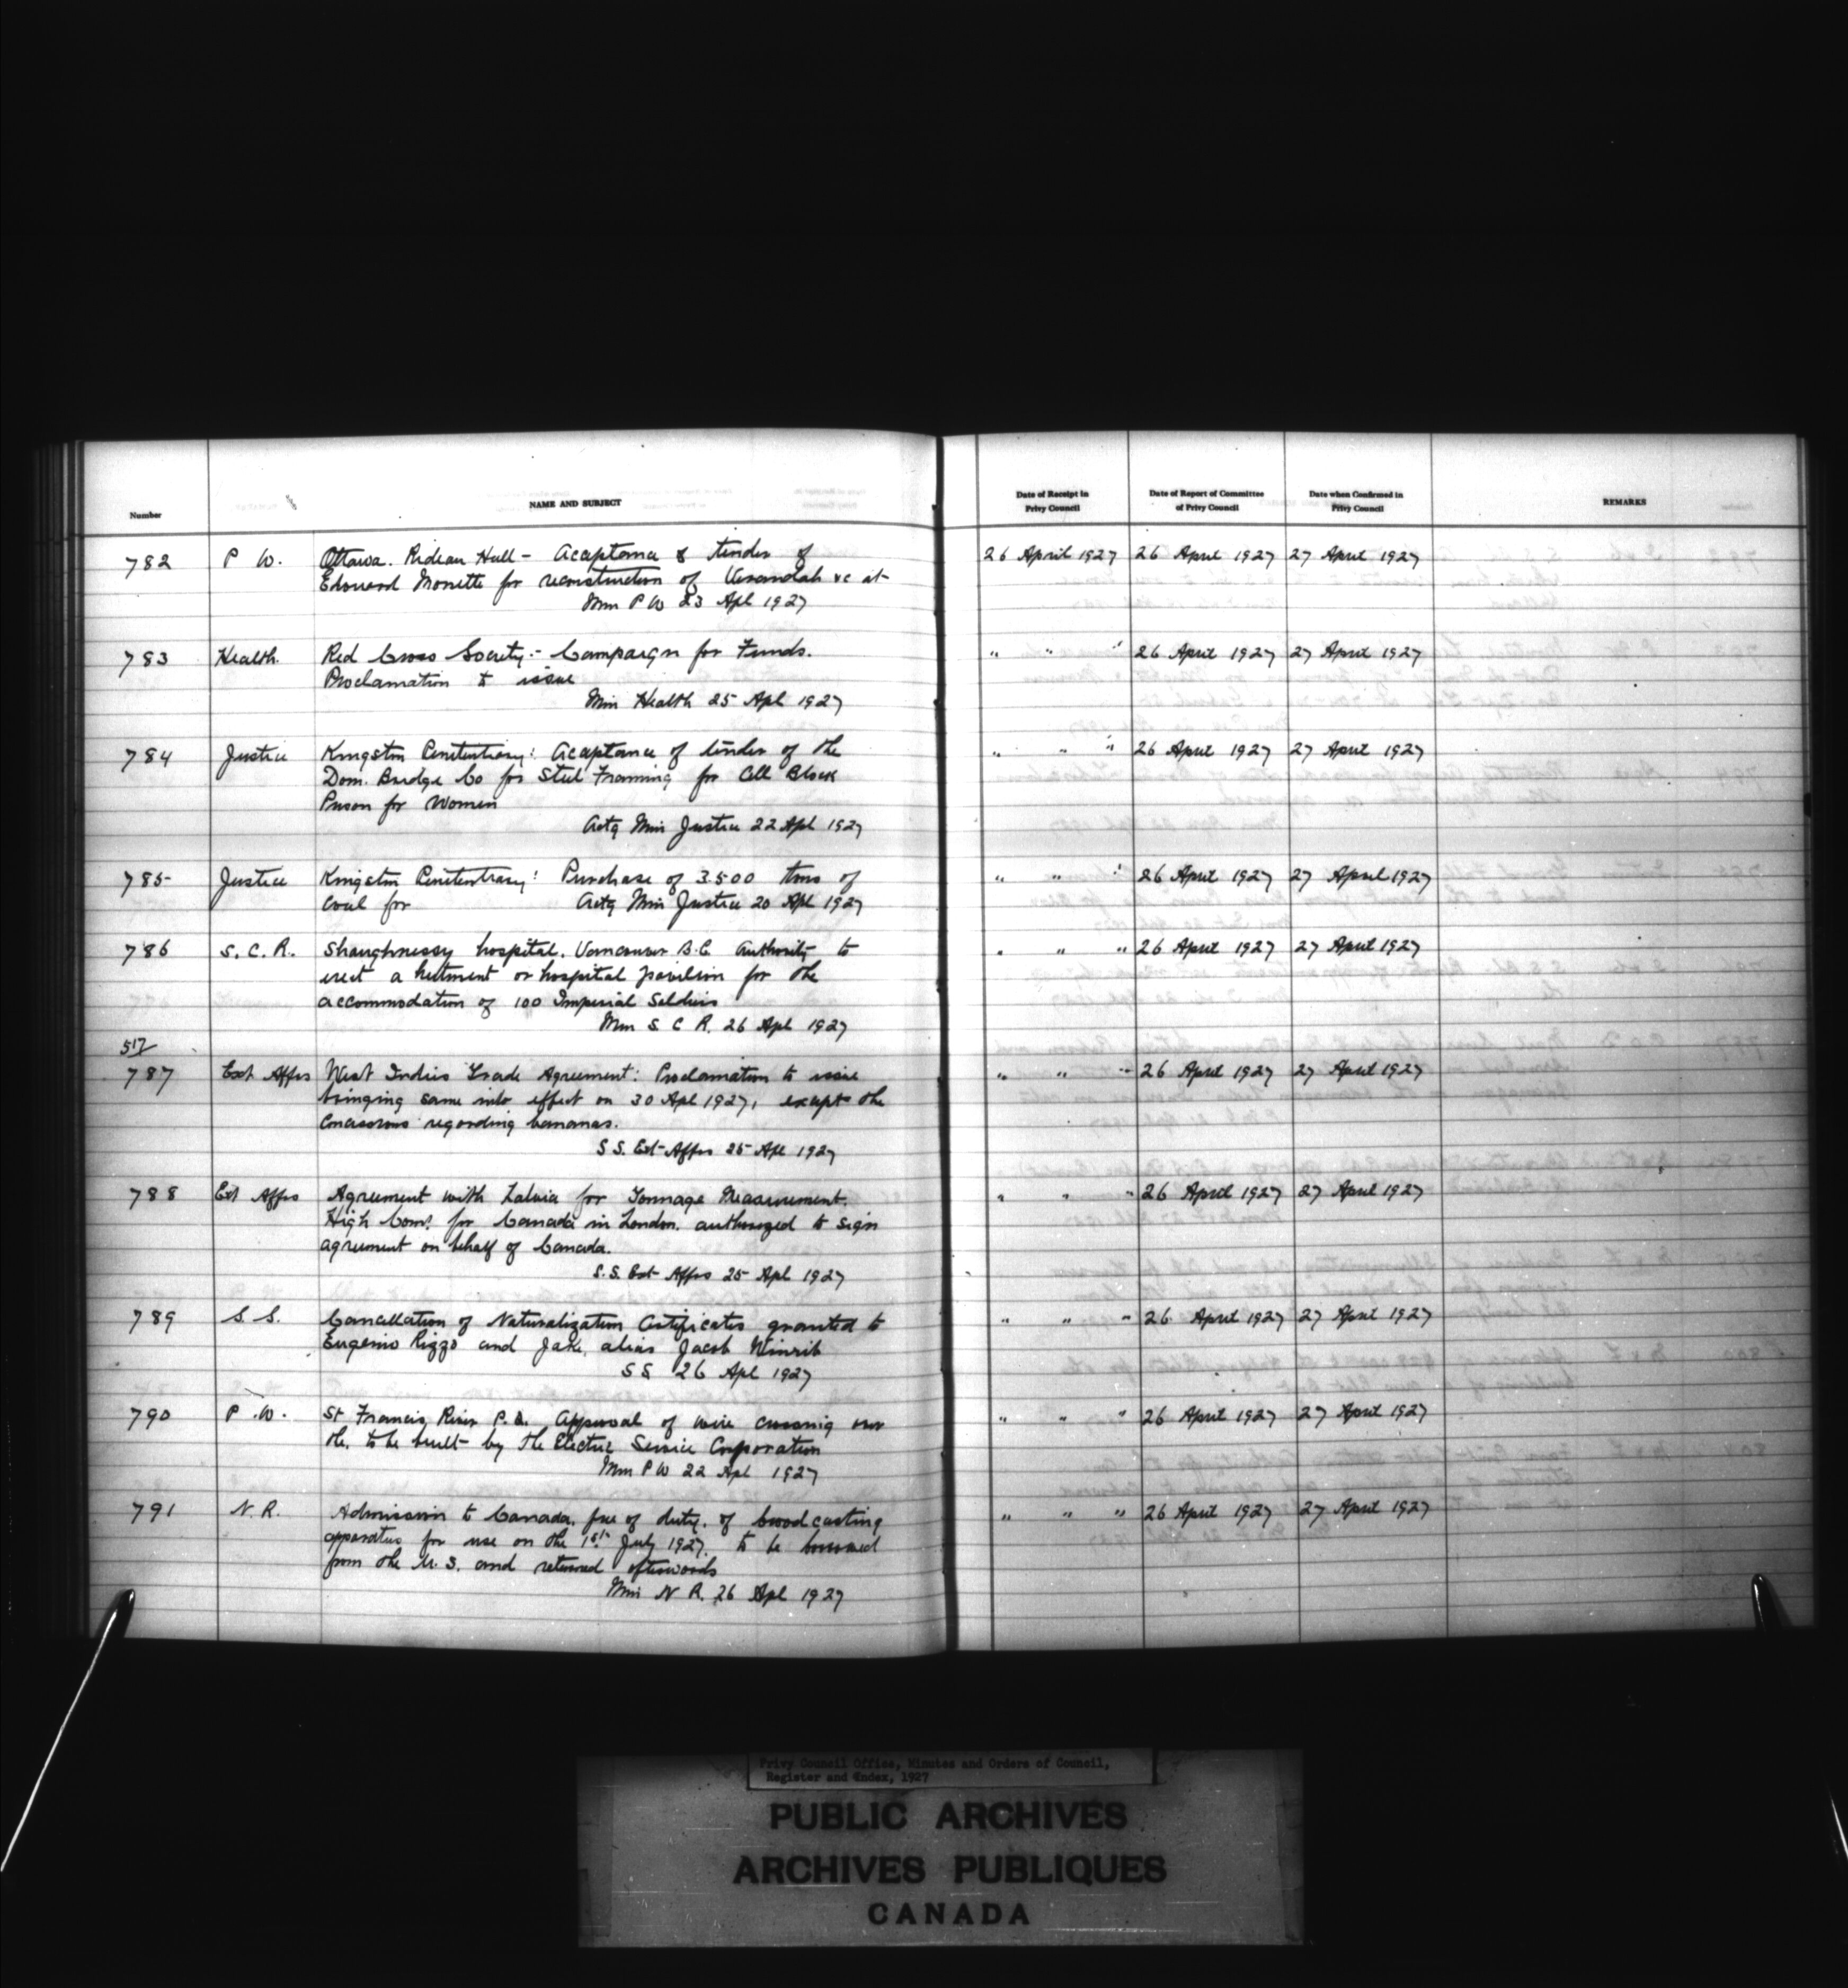 Number
NAME AND SUBJECT
Date of Receipt in Privy Council
Date of Report of Committee of Privy Council
Date when Confirmed in Privy Council
REMARKS
782 P W. Ottawa. Rideau Hall - Acceptance of tender of 26 April 1927 26 April 1927 27 April 1927
Edouard Monette for reconstruction of Verandah &c at
Min P W 23 Apl 1927
783 Health. Red Cross Society :- Campaign for Funds. " " " 26 April 1927 27 April 1927
Proclamation to issue
Min Health 25 Apl 1927
784 Justice Kingston Penitentiary: Acceptance of tender of the " " " 26 April 1927 27 April 1927
Dom. Bridge Co for Steel Framing for Cell Block
Prison for Women
Actg Min Justice 22 Apl 1927
785 Justice Kingston Penitentiary: Purchase of 3500 tons of " " " 26 April 1927 27 April 1927
Coal for Actg Min Justice 20 Apl 1927
786 S. C. R. Shaughnessy hospital. Vancouver B.C. Authority to " " " 26 April 1927 27 April 1927
erect a hutment or hospital pavilion for the
accommodation of 100 Imperial Soldiers
Min S C R. 26 Apl 1927
517
787 Ext Affrs West Indies Trade Agreement: Proclamation to issue " " " 26 April 1927 27 April 1927
bringing same into effect on 30 Apl 1927, except the
Concessions regarding bananas.
S S. Ext Affrs 25 Apl 1927
788 Ext Affrs Agreement with Latvia for Tonnage Measurement. " " " 26 April 1927 27 April 1927
High Comr. for Canada in London. authorized to sign
agreement on behalf of Canada.
S.S. Ext Affrs 25 Apl 1927
789 S. S. Cancellation of Naturalization Certificates granted to " " " 26 April 1927 27 April 1927
Eugenio Rizzo and Jake, alias Jacob Winrib
S S 26 Apl 1927
790 P. W. St Francis River P.Q. Approval of wire crossing over " " " 26 April 1927 27 April 1927
the, to be built by the Electric Service Corporation
Min P W 22 Apl 1927
791 N. R. Admission to Canada, free of duty, of broadcasting " " " 26 April 1927 27 April 1927
apparatus for use on the 1st July 1927, to be borrowed
from the U. S. and returned afterwards
Min N R. 26 Apl 1927
Privy Council Office, Minutes and Orders of Council,
Register and Index, 1927
PUBLIC ARCHIVES
ARCHIVES PUBLIQUES
CANADA